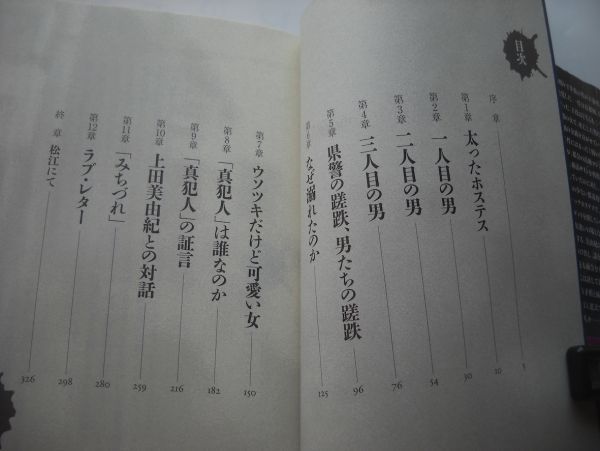 目次
序章
第1章 太ったホステス 10
第2章 一人目の男 30
第3章 二人目の男 54
第4章 三人目の男 76
第5章 県警の蹉跌、男たちの蹉跌 96
第6章 なぜ溺れたのか 125
第7章 ウソツキだけど可愛い女 150
第8章 「真犯人」は誰なのか 182
第9章 「真犯人」の証言 216
第10章 上田美由紀との対話 259
第11章 「みちづれ」 280
第12章 ラブ・レター 298
終章 松江にて 326